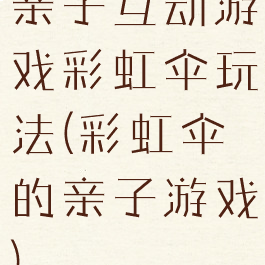 亲子互动游
戏彩虹伞玩
法(彩虹伞
的亲子游戏
)